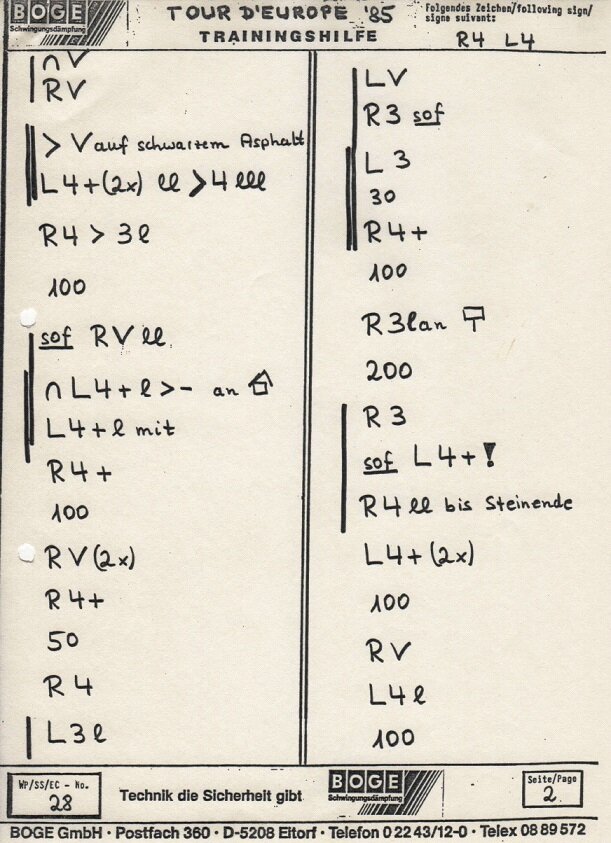 BOGE
Schwingungsdämpfung
TOUR D'EUROPE '85
TRAININGSHILFE
Folgendes Zeichen/following sign/
signe suivant:
R4 L4
∩ V
RV
> V auf schwarzem Asphalt
L4+(2x) ll >4 lll
R4 > 3l
100
sof RV ll
∩ L4+l >- an
L4+l mit
R4+
100
RV(2x)
R4+
50
R4
L3l
LV
R3 sof
L3
30
R4+
100
R3lan
200
R3
sof L4+!
R4 ll bis Steinende
L4+(2x)
100
RV
L4l
100
WP/SS/EC - No.
28
Technik die Sicherheit gibt
BOGE
Schwingungsdämpfung
Seite/Page
2
BOGE GmbH · Postfach 360 · D-5208 Eitorf · Telefon 0 22 43/12-0 · Telex 08 89 572